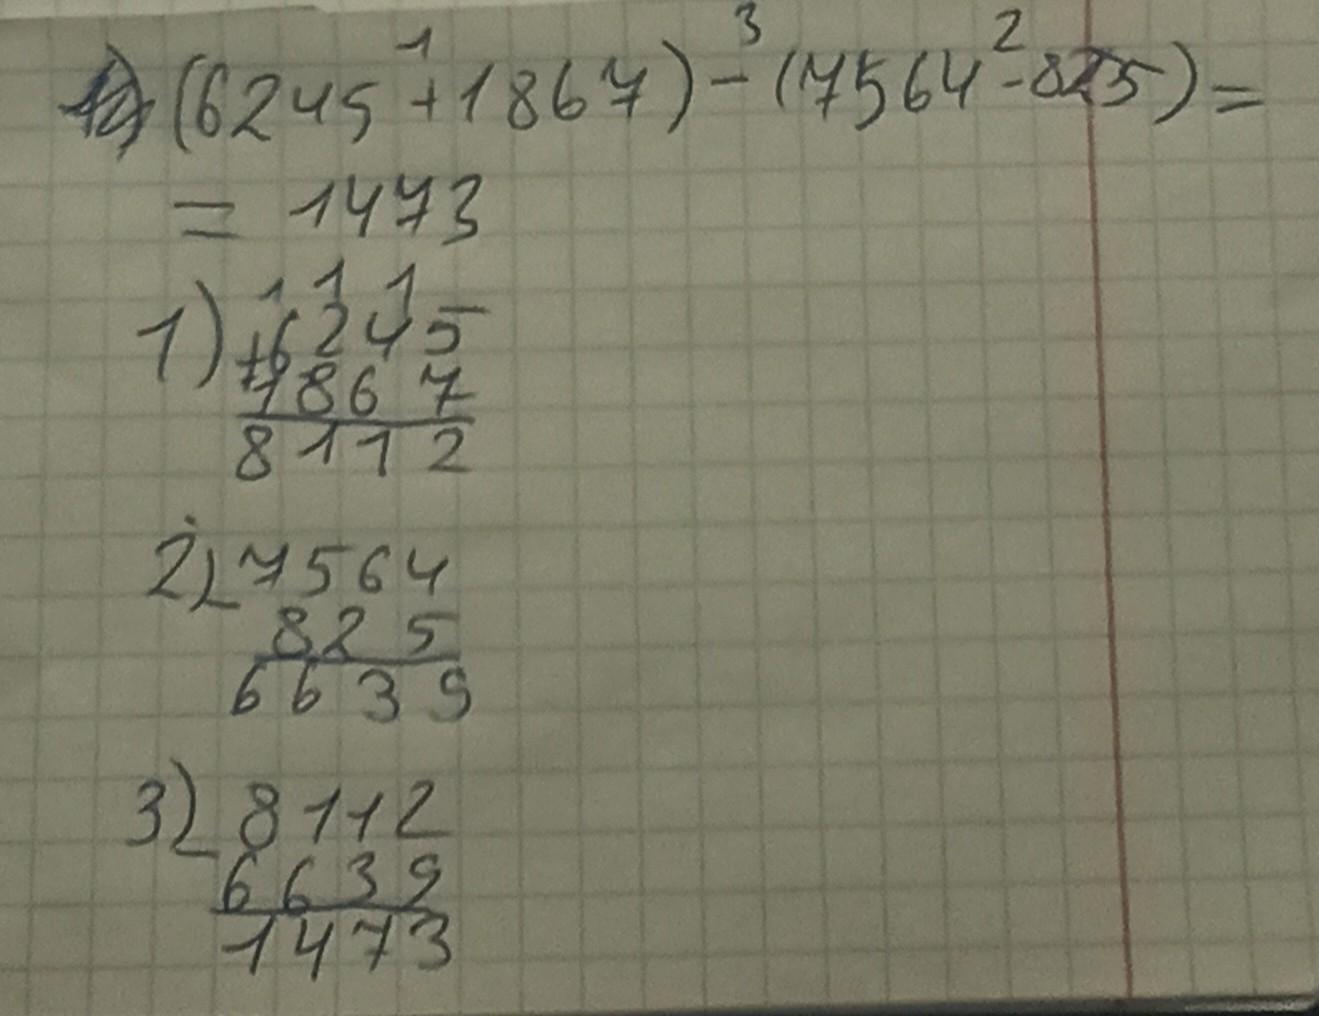 (6245 + 1867) - (7564 - 825) =
1 3 2
= 1473
1 1 1
1) + 6245
1867
8112
2) - 7564
825
6639
3) - 8112
6639
1473